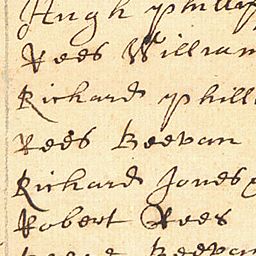 Hugh Phillip
Rees William
Richard Phill
Rees Beevan
Richard Jones
Robert Rees
Beevan